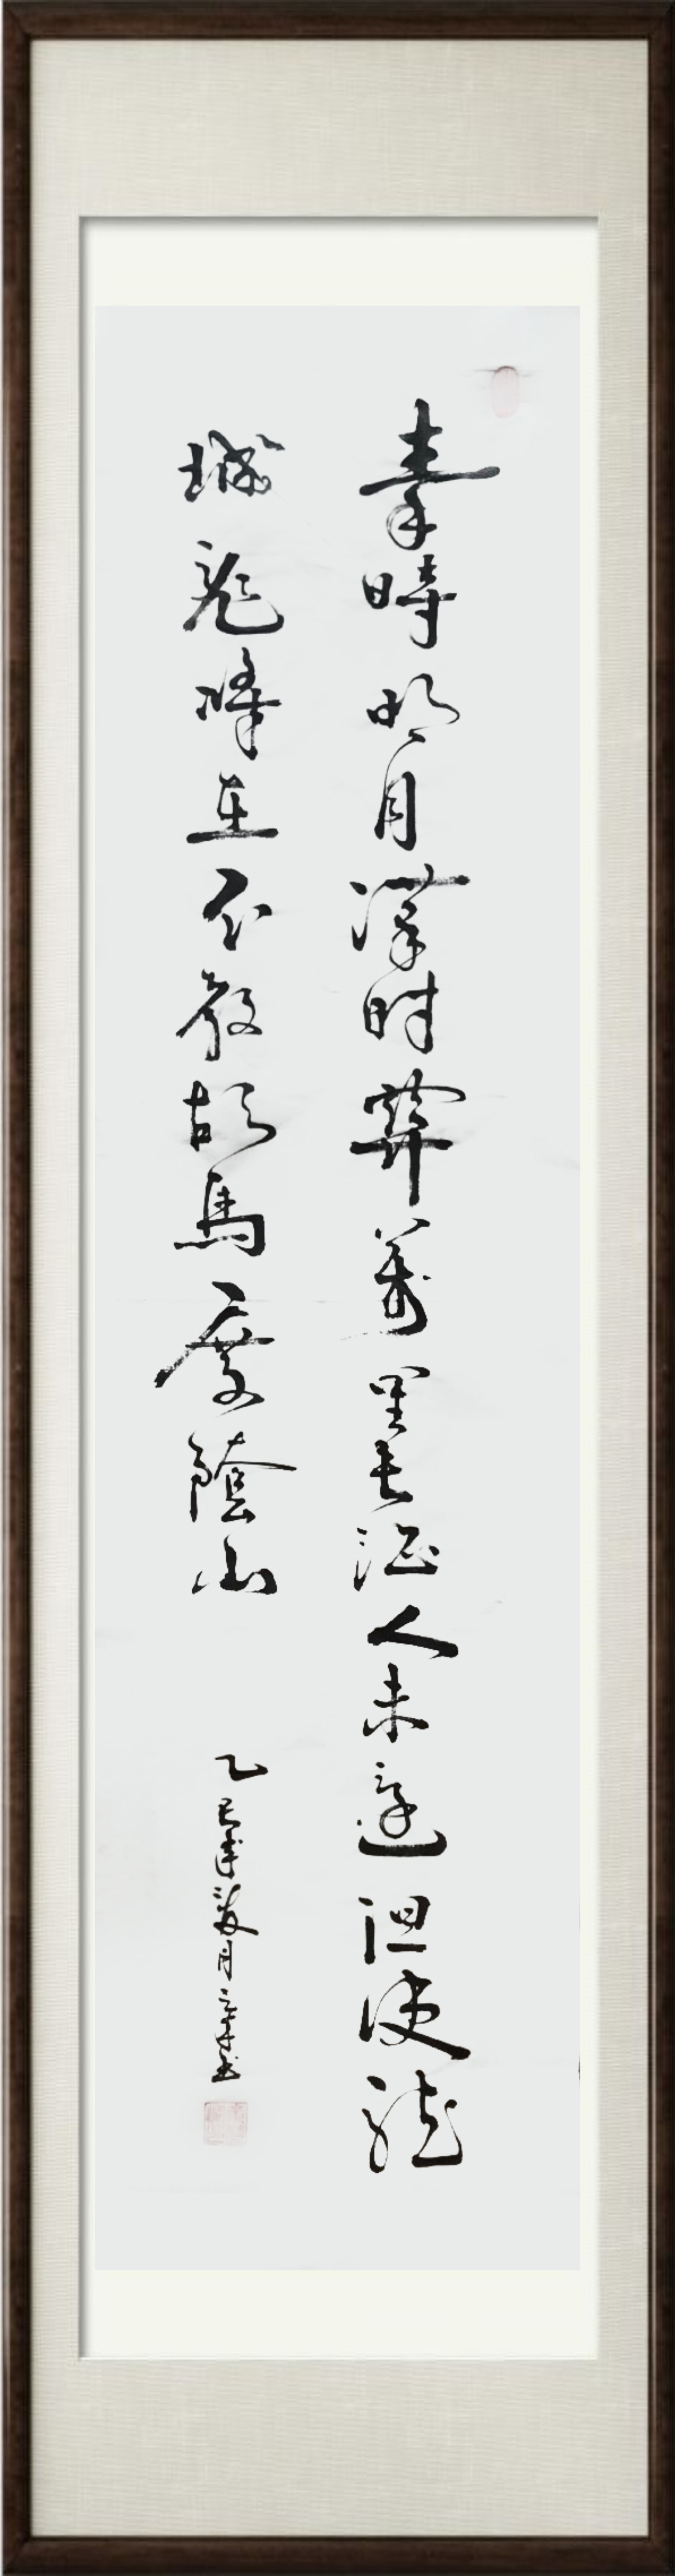 秦時明月漢時關萬里長征人未還但使龍
城飛將在不教胡馬度陰山
乙巳 月 書